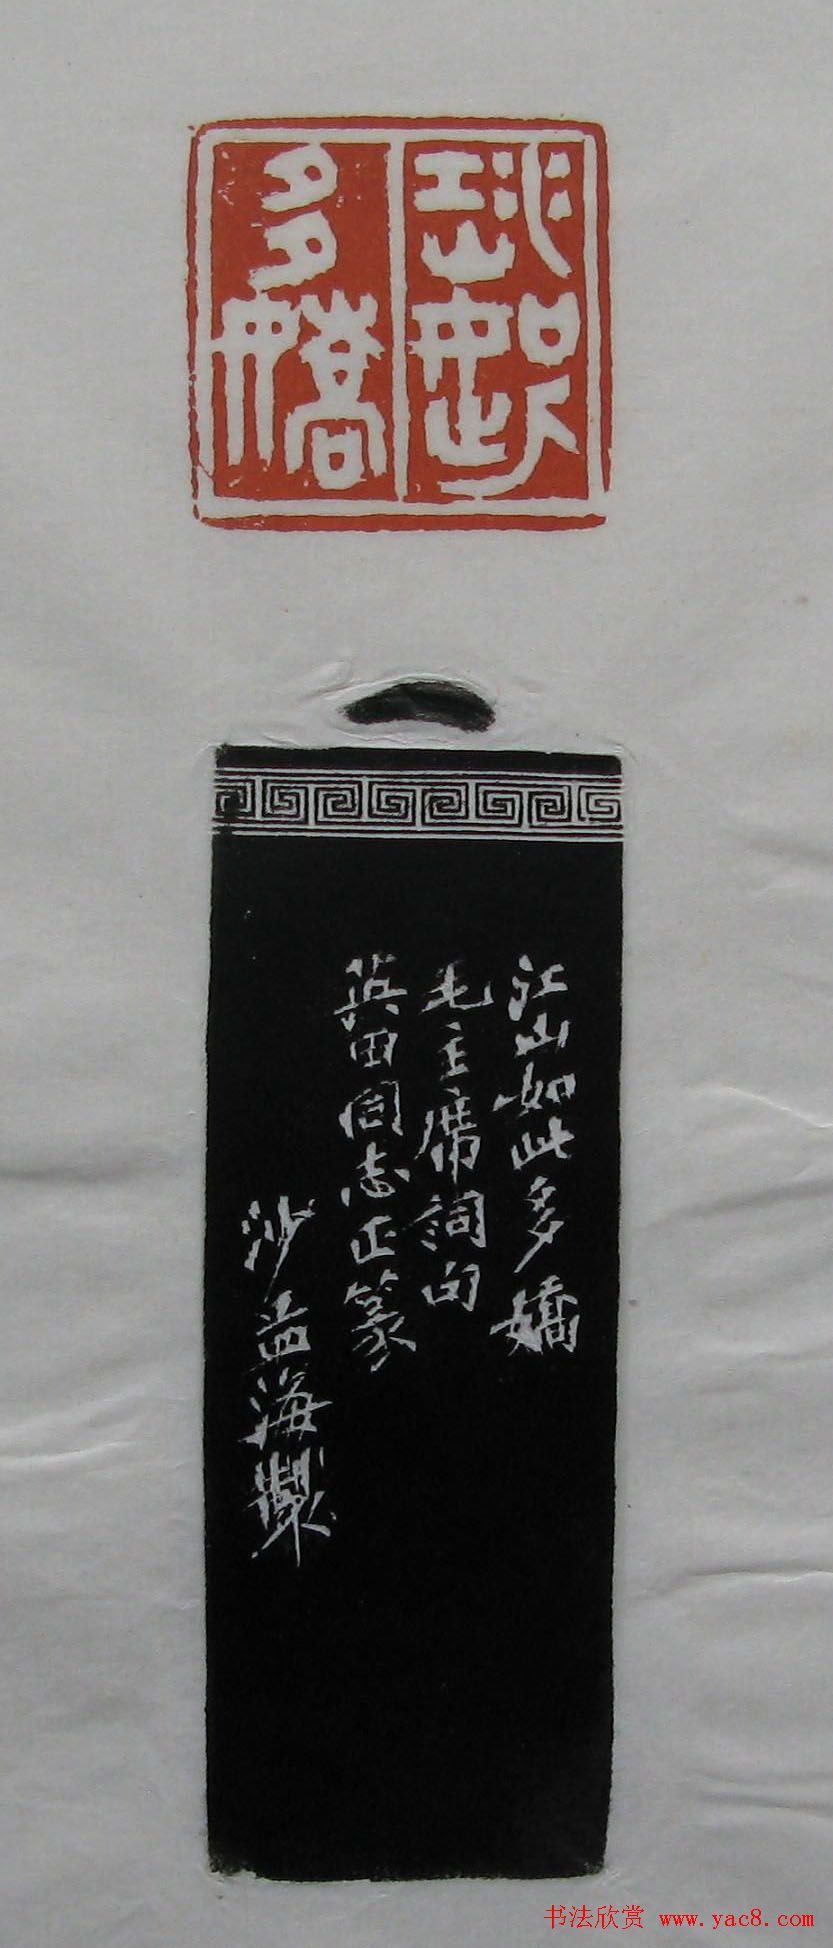 江山如此多嬌
江山如此多嬌
毛主席詞句
英田同志正篆
沙孟海製
书法欣赏 www.yac8.com